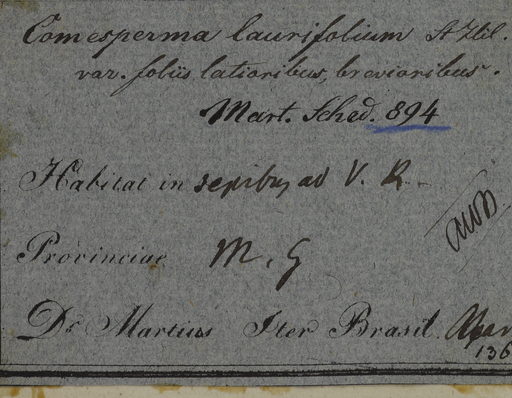 Comesperma laurifolium St Hil.
var. foliis latioribus, brevioribus.
Mart. Sched. 894
Habitat in sepibus ad V. R.
Provinciae M. G
Dr. Martius Iter Brasil.
136